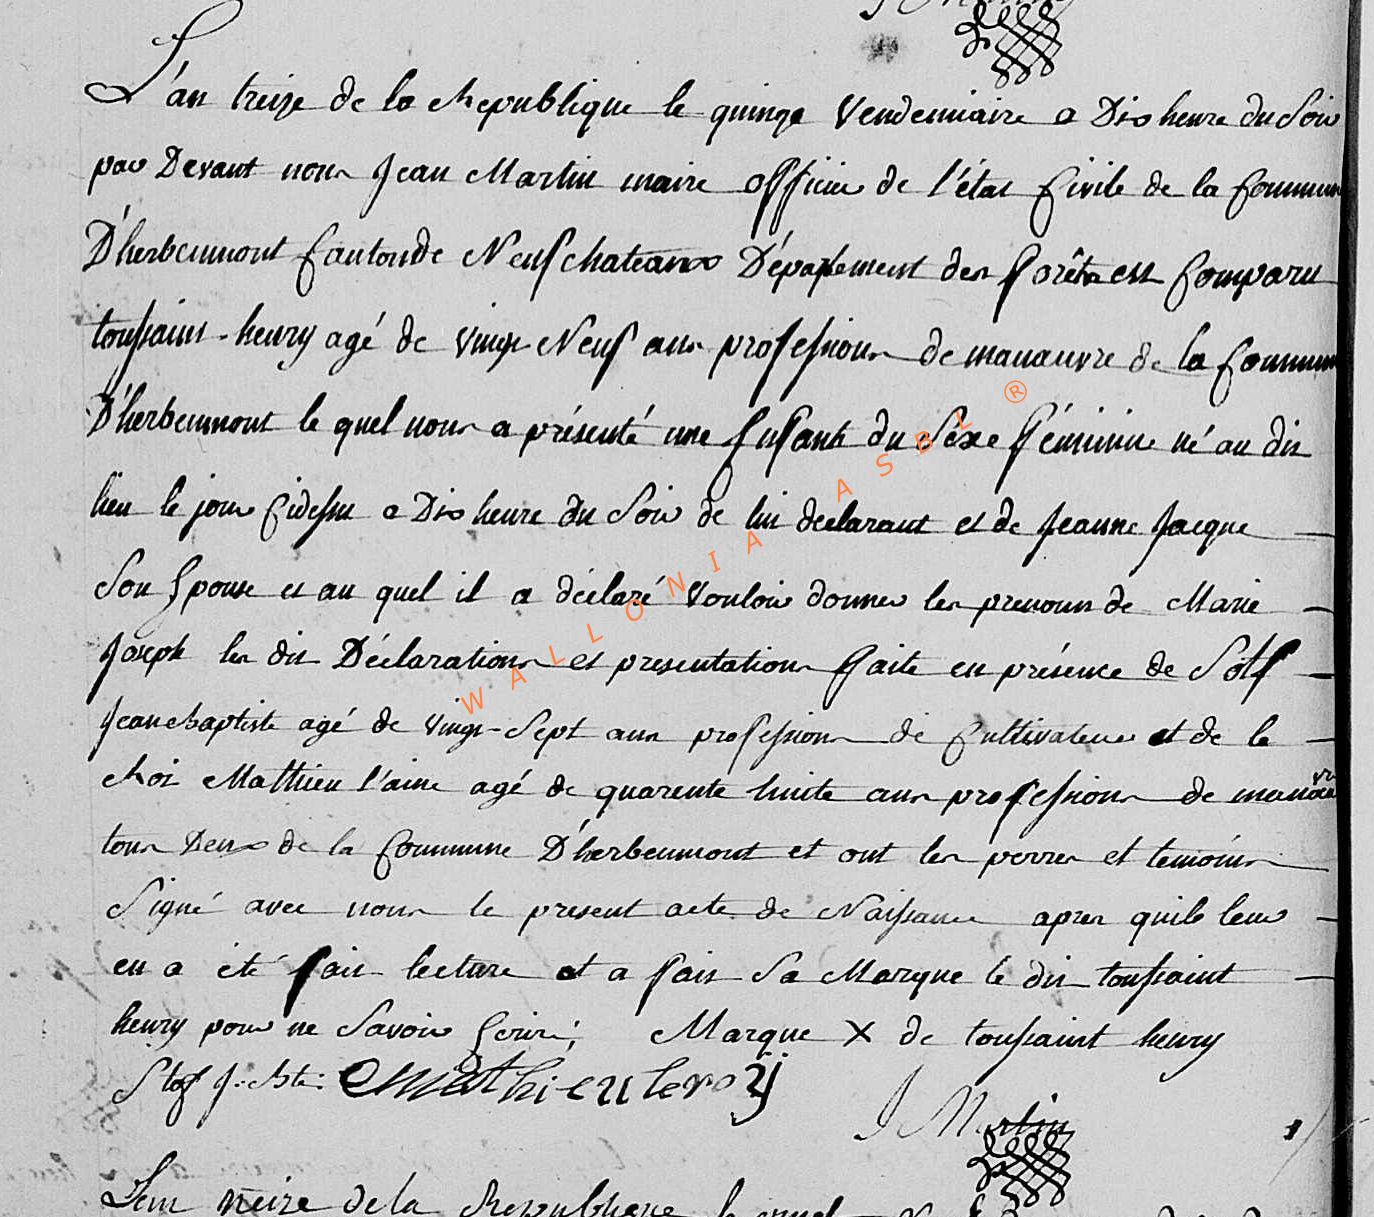 L'an treize de la Republique le quinze Vendemiaire a Dix heure du Soir
par Devant nous Jean Martin maire officier de l'état Civile de la Commune
D'herbeumont Canton de Neufchateaux Département des forêts est Comparu
toussaint - henry agé de vingt Neuf ans profession de manoeuvre de la Commune
D'herbeumont le quel nous a présenté une Enfant du Sexe féminine né au dit
lieu le jour Cidessu a Dix heure du Soir de lui declarant et de Jeanne Jacque
Son Epouse et au quel il a déclaré Vouloir donner les prenoms de Marie
Joseph les dit Déclaration et presentation faite en présence de Stolf
Jean baptiste agé de Vingt-Sept ans profession de Cultivateur et de le
Roi Mathieu l'aine agé de quarente huite ans profession de manoeuvre
tous Deux de la Commune D'herbeumont et ont les perres et temoins
Signé avec nous le present acte de Naissance apres quils leur
en a été fait lecture et a fait Sa Marque le dit toussaint
henry pour ne Savoir Ecrire; Marque X de toussaint henry
Stof J: Bte: Mathieu leroij
J Martin
L'an treize de la Republique le
WALLONIA ASBL ®